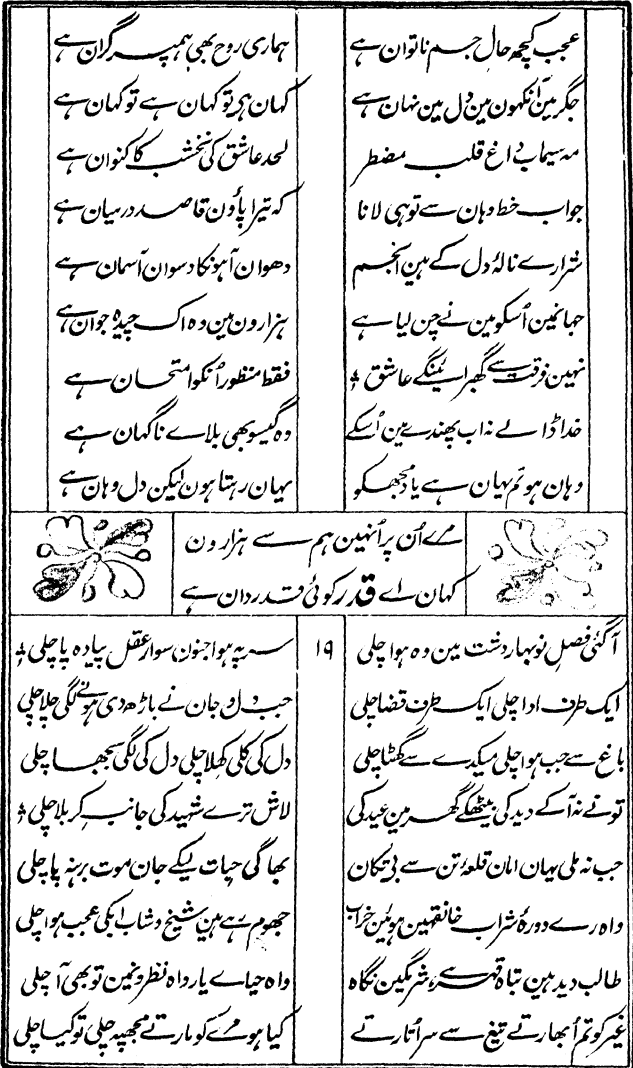 عجب کچھ حال جسم ناتوان ہے ہماری روح بھی ہمپر گران ہے
جگر مین آنکھون مین دل مین نہان ہے کہان ہی تو کہان ہے تو کہان ہے
مہ سیماب داغ قلب مضطر لحد عاشق کی نخشب کا کنوان ہے
جواب خط وہان سے تو ہی لانا کہ تیرا پاؤن قاصد درمیان ہے
شرارے نالۂ دل کے ہین انجم دھوان آہونکا دسوان آسمان ہے
جہانمین اُسکو مین نے چن لیا ہے ہزارون مین وہ اک چیدہ جوان ہے
نہین فرقت سے گھبرائینگے عاشق فقط منظور اُنکو امتحان ہے
خدا ڈالے نہ اب پھندے مین اُسکے وہ گیسو بھی بلاے ناگہان ہے
وہان ہو تم یہان ہے یاد مجھکو یہان رہتا ہون لیکن دل وہان ہے
مرے اُن پر اُنہین ہم سے ہزارون
کہان اے قدر کوئی قدردان ہے
آگئی فصل نوبہار دشت مین وہ ہوا چلی ۱۹ سر پہ ہوا جنون سوار عقل پیادہ پا چلی
ایک طرف ادا چلی ایک طرف قضا چلی جب دل و جان نے باڑھ دی ہونے لگی چلا چلی
باغ سے جب ہوا چلی میکدے سے گھٹا چلی دل کی کلی کھلا چلی دل کی لگی بجھا چلی
تونے نہ آکے دید کی بیٹھکے گھر مین عید کی لاش ترے شہید کی جانب کربلا چلی
جب نہ ملی یہان امان قلعۂ تن سے بی تکان بھاگی حیات لیکے جان موت برہنہ پا چلی
واہ رے دورۂ شراب خانقہین ہوئین خراب جھوم رہے ہین شیخ و شاب ابکی عجب ہوا چلی
طالب دید ہین تباہ قہر ہے شرمگین نگاہ واہ حیاے یار واہ نظرونمین تو بھی آ چلی
غیر کو تم اُبھارتے تیغ سے سر اُتارتے کیا ہو مرے کو مارتے مجھپہ چلی تو کیا چلی